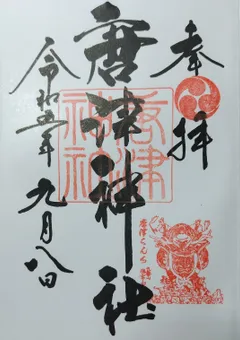 奉拝
唐津神社
唐津神社
令和五年 九月八日
唐津くんち